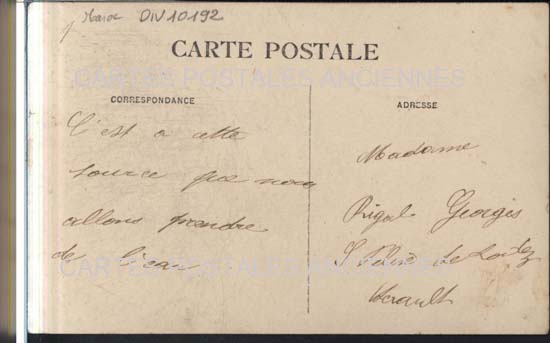 Maroc DIV10192
CARTE POSTALE
CARTES POSTALES ANCIENNES
CORRESPONDANCE
ADRESSE
C'est a cette
source que nous
allons prendre
de l'eau
Madame
Rigal Georgis
Herault
CARTES POSTALES ANCIENNES